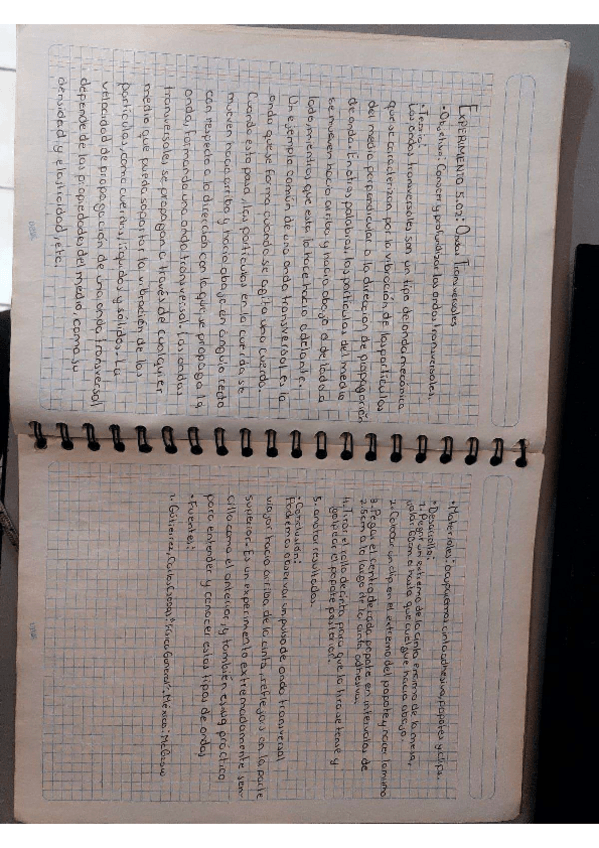 EXPERIMENTO 15.02: Ondas Transversales
• Objetivo: Conocer y profundizar las ondas transversales.
• Teoría:
Las ondas transversales son un tipo de onda mecánica
que se caracterizan por la vibración de las partículas
del medio perpendicular a la dirección de propagación
de onda. En otras palabras, las partículas del medio
se mueven hacia arriba y hacia abajo o de lado a
lado, mientras que esta lo hace hacia adelante.
Un ejemplo común de una onda transversal es la
onda que se forma cuando se agita una cuerda.
Cuando esta pasa, las partículas en la cuerda se
mueven hacia arriba y hacia abajo en ángulo recto
con respecto a la dirección con la que se propaga la
onda, formando una onda transversal. Las ondas
transversales se propagan a través de cualquier
medio que pueda soportar la vibración de las
partículas, como cuerdas, líquidos y sólidos. La
velocidad de propagación de una onda transversal
depende de las propiedades del medio, como su
densidad y elasticidad, etc.
• Materiales: ocuparemos cinta adhesiva, popotes y clips.
• Desarrollo:
1. Pegar un extremo de la cinta encima de la mesa,
jalar hasta que cuelgue hacia abajo.
2. Colocar un clip en el extremo del popote y hacer lo mismo
3. Pegar el centro de cada popote en intervalos de
2.5cm a lo largo de la cinta adhesiva.
4. Tirar el rollo de cinta para que la tira se tense y
golpear el popote
5. anotar resultados.
• Conclusión:
Podemos observar un pulso de onda transversal
viajar hacia arriba de la cinta, reflejas en la parte
superior. Es un experimento extremadamente sen-
cillo como el anterior, y también es muy práctico
para entender y conocer estos tipos de ondas
• Fuentes:
1. Gutiérrez, Carlos "Física General". México: McGraw